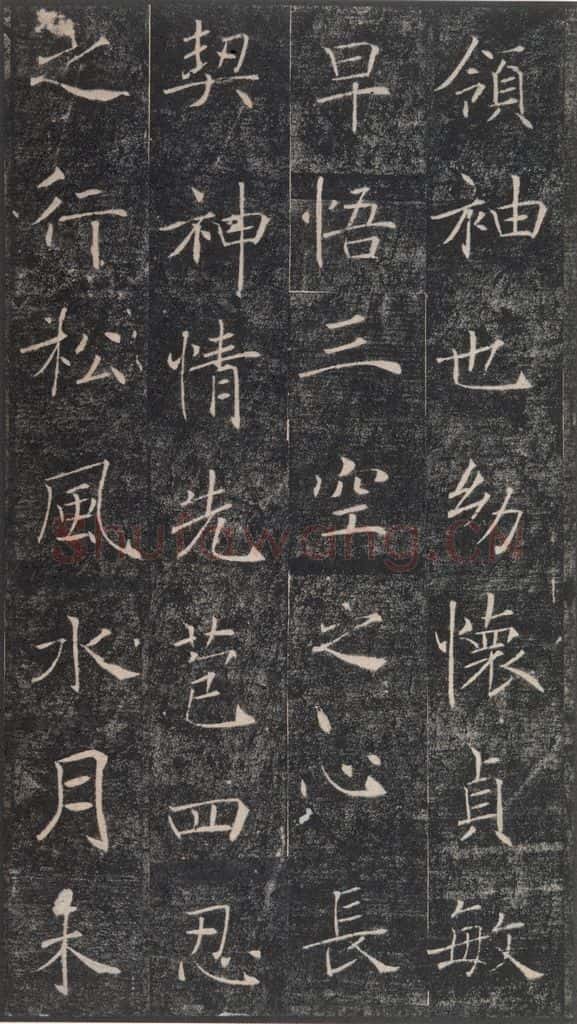 領袖也幼懷貞敏
早悟三空之心長
契神情先苞四忍
之行松風水月未
shufawang.cn